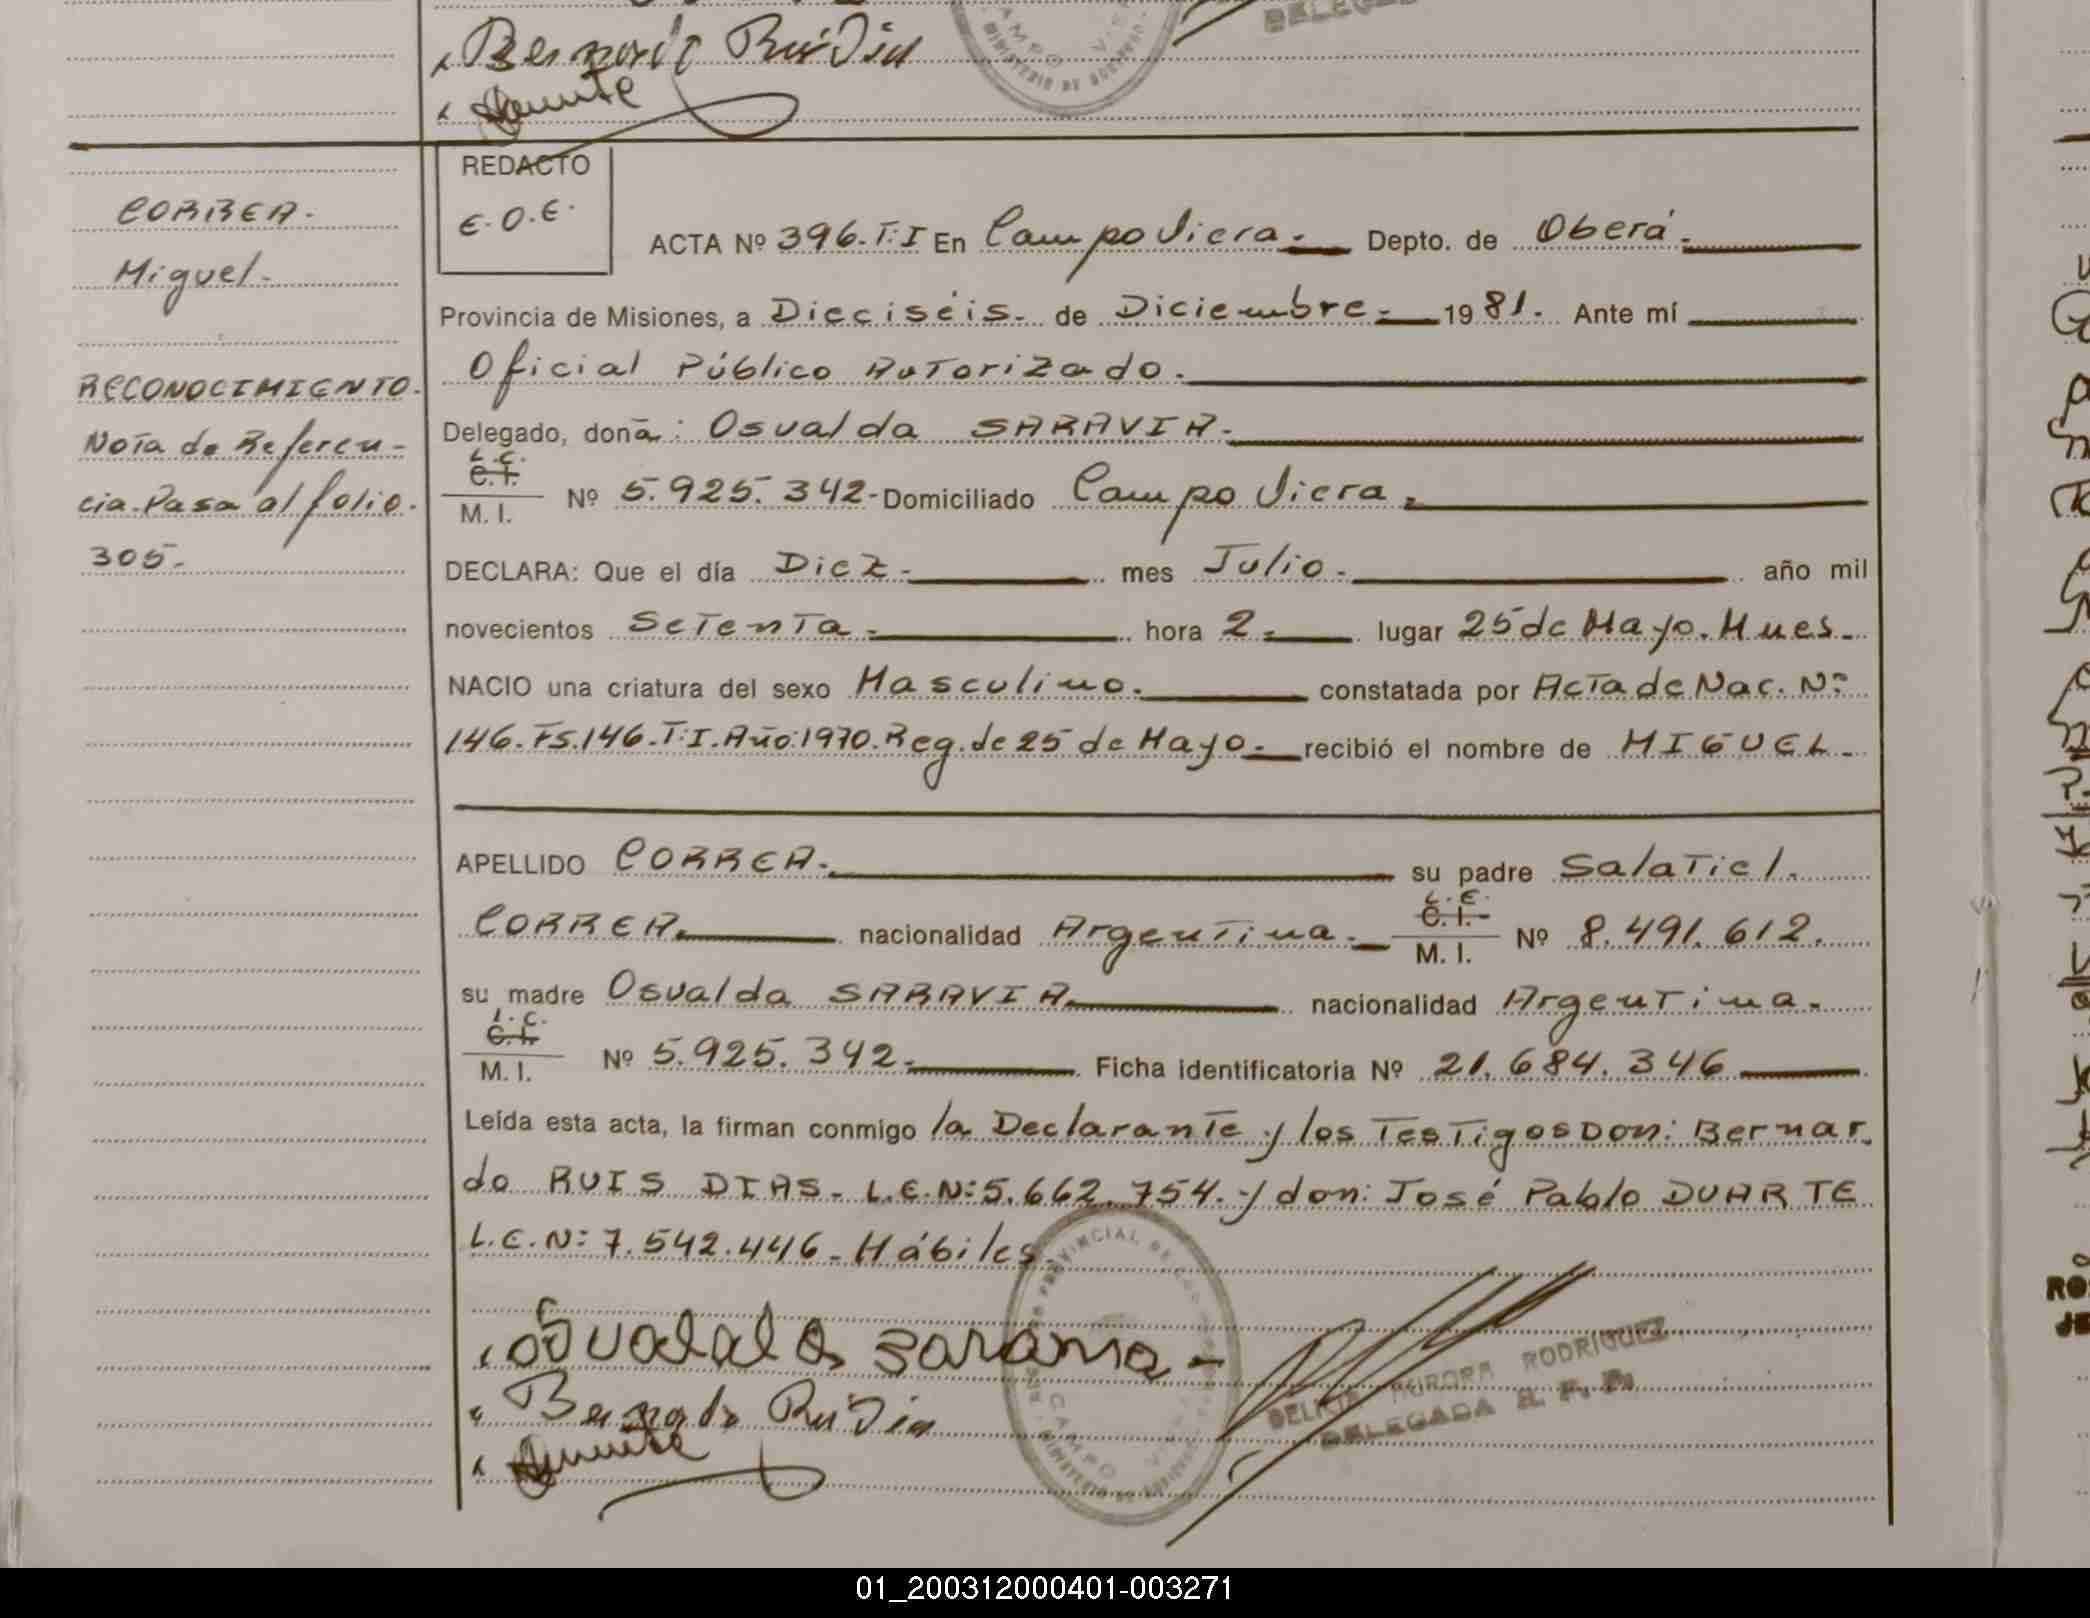 Bernardo Rui Dia
DELEGADA
CAMPO VIERA
MINISTERIO DE GOBIERNO
REDACTO
E.O.E.
CORREA.
Miguel.
RECONOCIMIENTO.
Nota de Referen-
cia. Pasa al folio.
305.
ACTA Nº 396.T:I En Campo Viera. Depto. de Oberá.
Provincia de Misiones, a Dieciséis. de Diciembre. 1981. Ante mí
Oficial Público Autorizado.
Delegado, doña: Osvalda SARAVIA.
L.C.
C.I.
M. I. Nº 5.925.342- Domiciliado Campo Viera.
DECLARA: Que el día Diez. mes Julio. año mil
novecientos Setenta. hora 2. lugar 25 de Mayo. Mnes.
NACIO una criatura del sexo Masculino. constatada por Acta de Nac. Nº
146. Fs. 146. T:I. Año:1970. Reg. de 25 de Mayo. recibió el nombre de MIGUEL.
APELLIDO CORREA. su padre Salatiel.
L.E.
CORREA. nacionalidad Argentina. C.I. M. I. Nº 8.491.612.
su madre Osvalda SARAVIA. nacionalidad Argentina.
L.C.
C.I.
M. I. Nº 5.925.342. Ficha identificatoria Nº 21.684.346
Leída esta acta, la firman conmigo la Declarante y los Testigos Don: Bernar
do RUIS DIAS. L.E.N: 5.662.754. y don: José Pablo DUARTE
L.E.N: 7.542.446. Hábiles.
Osvalda Saravia -
Bernardo Rui Dia
CAMPO VIERA
DELICIA AURORA RODRIGUEZ
DELEGADA R. P. P.
01_200312000401-003271